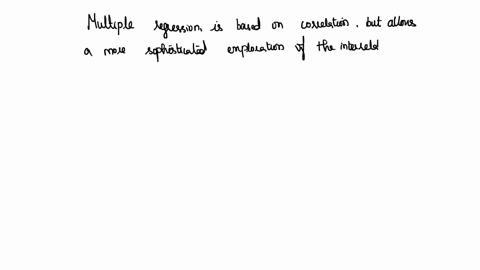 Multiple regression is based on correlation, but allows
a more sophisticated exploration of the interrelat